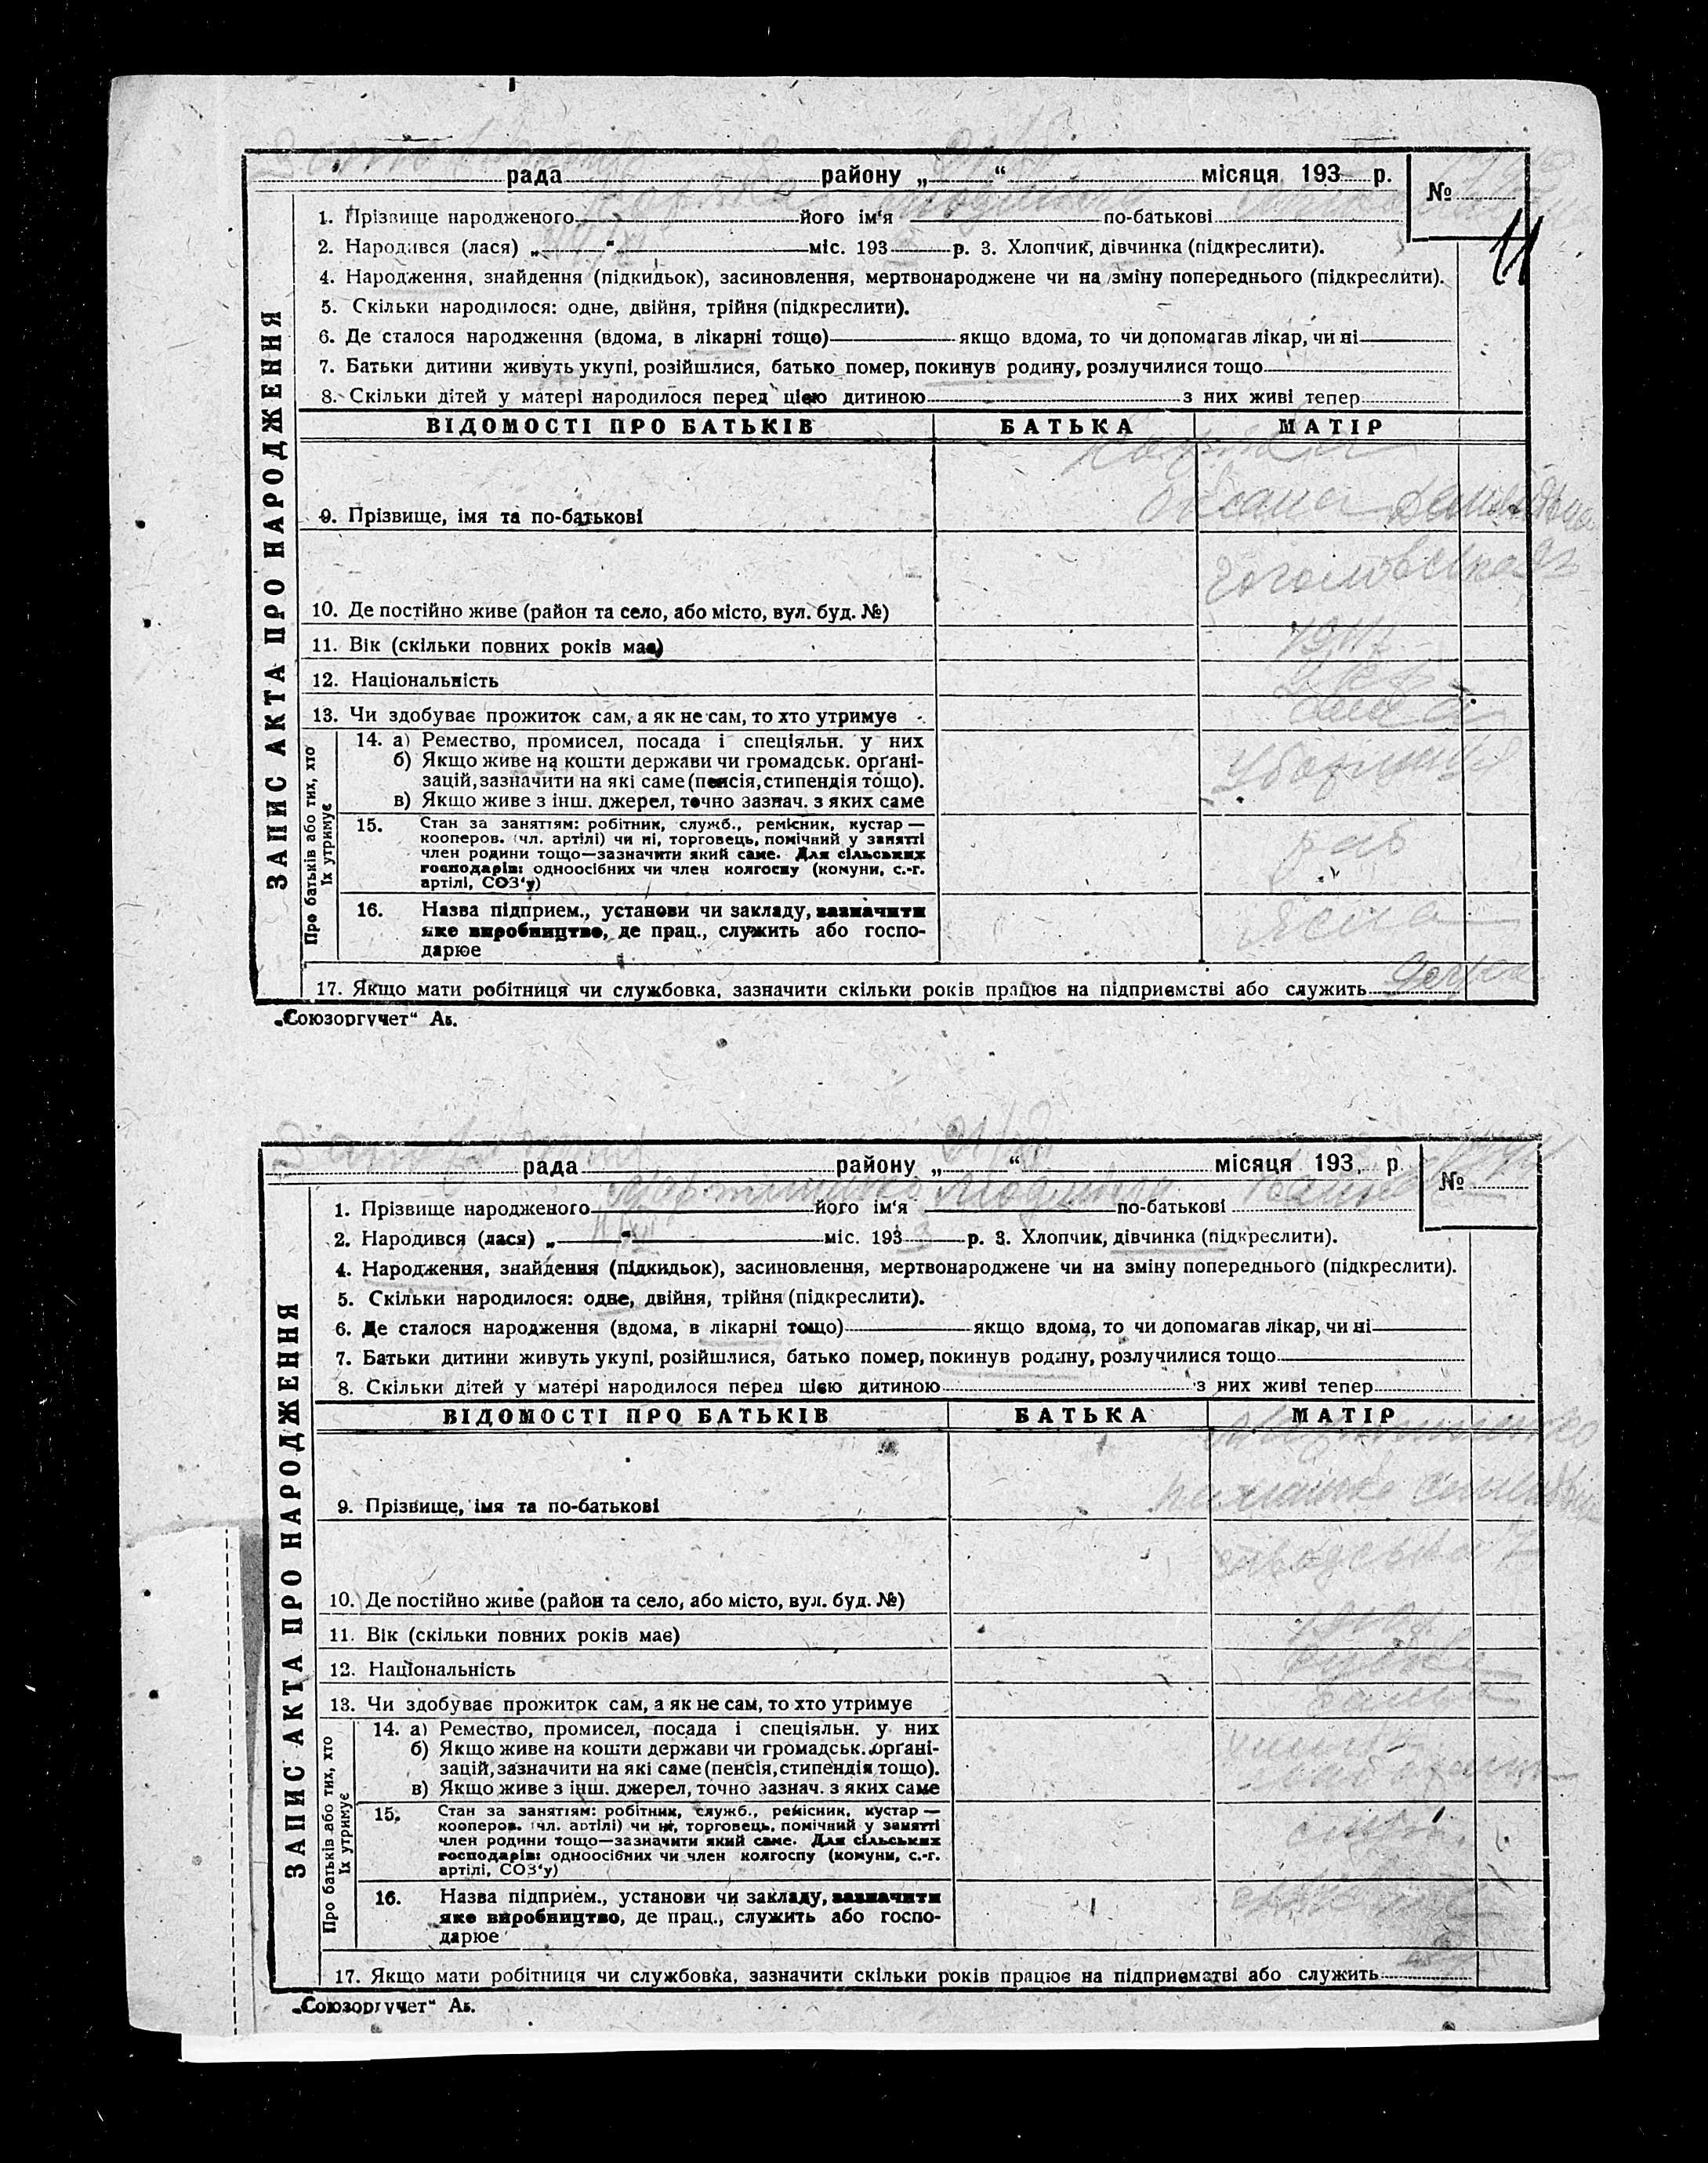 рада району „ “ місяця 193 р. №
11
ЗАПИС АКТА ПРО НАРОДЖЕННЯ
1. Прізвище народженого його ім‘я Людмила по-батькові
2. Народився (лася) „ “ міс. 193 р. 3. Хлопчик, дівчинка (підкреслити).
4. Народження, знайдення (підкидьок), засиновлення, мертвонароджене чи на зміну попереднього (підкреслити).
5. Скільки народилося: одне, двійня, трійня (підкреслити).
6. Де сталося народження (вдома, в лікарні тощо) якщо вдома, то чи допомагав лікар, чи ні
7. Батьки дитини живуть укупі, розійшлися, батько помер, покинув родину, розлучилися тощо
8. Скільки дітей у матері народилося перед цією дитиною з них живі тепер
ВІДОМОСТІ ПРО БАТЬКІВ БАТЬКА МАТІР
Оксана
9. Прізвище, імя та по-батькові
Гоголовська
10. Де постійно живе (район та село, або місто, вул. буд. №)
11. Вік (скільки повних років має)
12. Національність Укр
13. Чи здобуває прожиток сам, а як не сам, то хто утримує сама
Про батьків або тих, хто їх утримує
14. а) Ремество, промисел, посада і спеціяльн. у них
б) Якщо живе на кошти держави чи громадськ. орґані-
зацій, зазначити на які саме (пенсія, стипендія тощо).
в) Якщо живе з інш. джерел, точно зазнач. з яких саме
Уборщиця
15. Стан за заняттям: робітник, служб., ремісник, кустар —
кооперов. (чл. артілі) чи ні, торговець, помічний у занятті
член родини тощо—зазначити який саме. Для сільських
господарів: одноосібних чи член колгоспу (комуни, с.-г.
артілі, СОЗ‘у)
роб
16. Назва підприєм., установи чи закладу, зазначити
яке виробництво, де прац., служить або госпо-
дарює
Ясла
17. Якщо мати робітниця чи службовка, зазначити скільки років працює на підприємстві або служить
„Союзоргучет“ Аб.
рада району „ “ місяця 193 р. №
ЗАПИС АКТА ПРО НАРОДЖЕННЯ
1. Прізвище народженого Мартиненко його ім‘я Людмила по-батькові
2. Народився (лася) „ “ міс. 193 3 р. 3. Хлопчик, дівчинка (підкреслити).
4. Народження, знайдення (підкидьок), засиновлення, мертвонароджене чи на зміну попереднього (підкреслити).
5. Скільки народилося: одне, двійня, трійня (підкреслити).
6. Де сталося народження (вдома, в лікарні тощо) якщо вдома, то чи допомагав лікар, чи ні
7. Батьки дитини живуть укупі, розійшлися, батько помер, покинув родину, розлучилися тощо
8. Скільки дітей у матері народилося перед цією дитиною з них живі тепер
ВІДОМОСТІ ПРО БАТЬКІВ БАТЬКА МАТІР
Мартиненко
9. Прізвище, імя та по-батькові
10. Де постійно живе (район та село, або місто, вул. буд. №)
11. Вік (скільки повних років має)
12. Національність
13. Чи здобуває прожиток сам, а як не сам, то хто утримує сама
Про батьків або тих, хто їх утримує
14. а) Ремество, промисел, посада і спеціяльн. у них
б) Якщо живе на кошти держави чи громадськ. орґані-
зацій, зазначити на які саме (пенсія, стипендія тощо).
в) Якщо живе з інш. джерел, точно зазнач. з яких саме
15. Стан за заняттям: робітник, служб., ремісник, кустар —
кооперов. (чл. артілі) чи ні, торговець, помічний у занятті
член родини тощо—зазначити який саме. Для сільських
господарів: одноосібних чи член колгоспу (комуни, с.-г.
артілі, СОЗ‘у)
служ.
16. Назва підприєм., установи чи закладу, зазначити
яке виробництво, де прац., служить або госпо-
дарює
17. Якщо мати робітниця чи службовка, зазначити скільки років працює на підприємстві або служить
„Союзоргучет“ Аб.